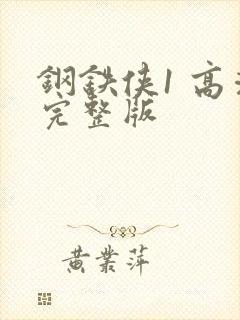 鋼鉄侠1 高清
完整版
黄業萍